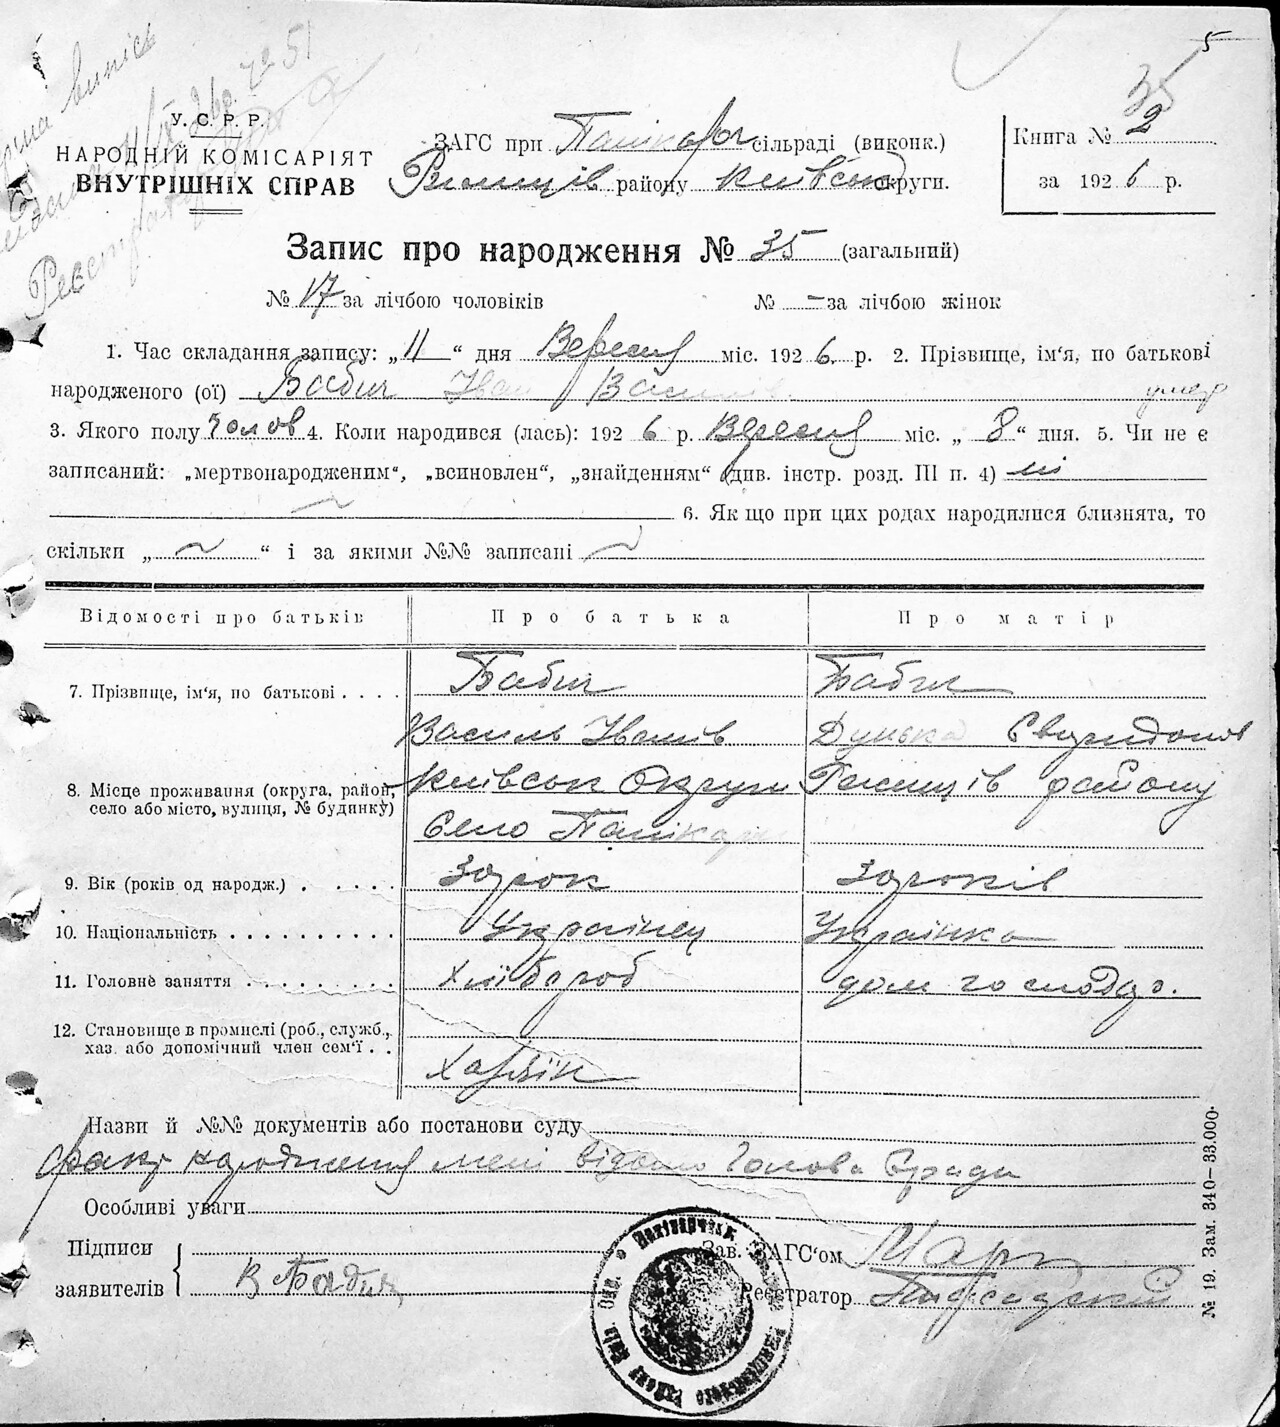 5
35
У. С. Р. Р.
НАРОДНІЙ КОМІСАРІЯТ
ВНУТРІШНІХ СПРАВ
ЗАГС при сільраді (виконк.)
Ржищів району Київськ округи.
Книга № 2
за 1926 р.
Запис про народження № 35 (загальний)
№ 17 за лічбою чоловіків № – за лічбою жінок
1. Час складання запису: „11“ дня Вересня міс. 1926. р. 2. Прізвище, ім'я, по батькові
народженого (ої) Бабич Іван Васильів умер
3. Якого полу Чолов 4. Коли народився (лась): 1926 р. Вересня міс. „8“ дня. 5. Чи не є
записаний: „мертвонародженим“, „всиновлен“, „знайденням“ (див. інстр. розд. III п. 4) ні
6. Як що при цих родах народилися близнята, то
скільки „ ~ “ і за якими №№ записані ~
Відомості про батьків Про батька Про матір
7. Прізвище, ім'я, по батькові . . . . Бабич Бабич
Василь Іванів Дунька
8. Місце проживання (округа, район, село або місто, вулиця, № будинку) Київськ Округи Ржищів району
Село
9. Вік (років од народж.) . . . . .
10. Національність . . . . . . . . . . Українец Українка
11. Головне заняття . . . . . . . . . Хлібороб дом господар.
12. Становище в промислі (роб., служб., хаз. або допомічний член сем'ї . .
Хазяїн
Назви й №№ документів або постанови суду
факт народження мені відомо Голова С/ради
Особливі уваги
Підписи
заявителів
В Бабич
Зав. ЗАГС'ом
Реєстратор
№ 19. Зам. 340—33.000.